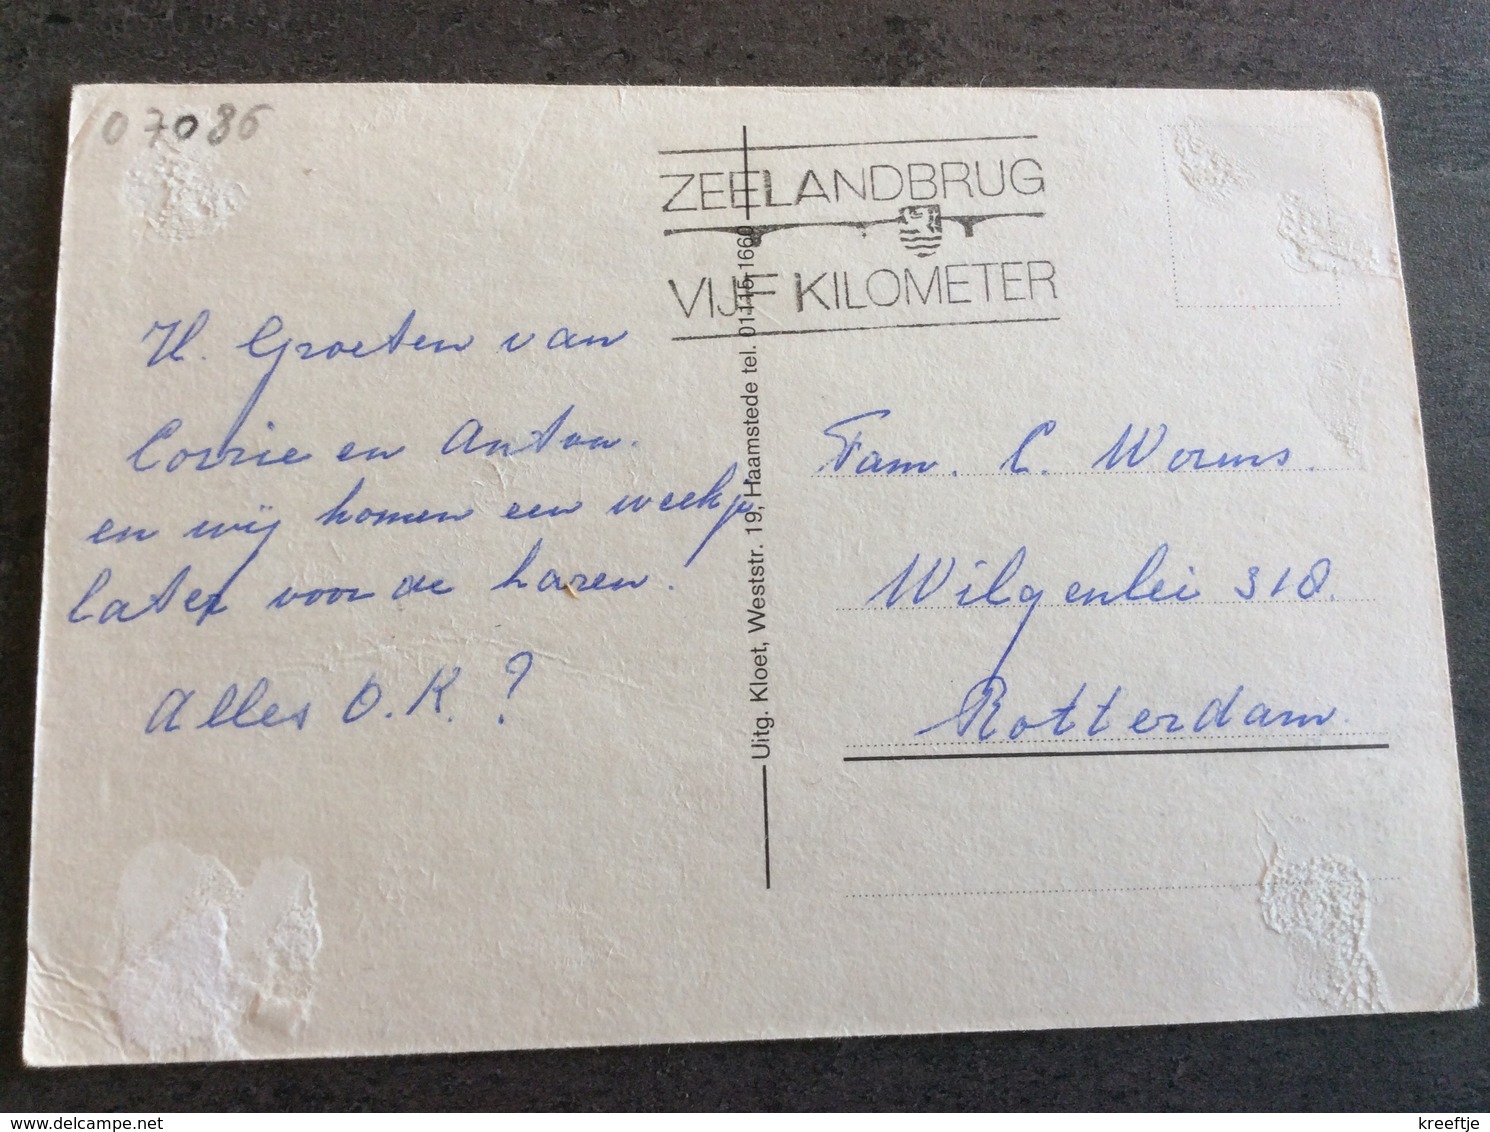 07086
ZEELANDBRUG
VIJF KILOMETER
H. Groeten van
Corrie en Anton.
en wij komen een weekje
later voor de haren.
Alles O.K.?
Uitg. Kloet, Weststr. 19, Haamstede tel. 01115-1660
Fam. C. Worms.
Wilgenlei 318.
Rotterdam.
kreeftje